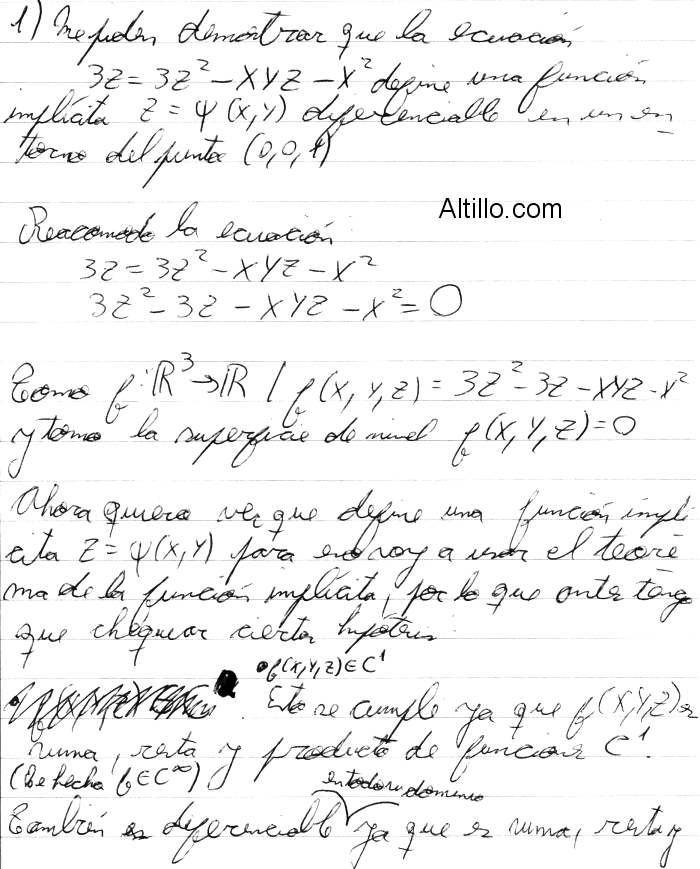 1) Me piden demostrar que la ecuación
3Z = 3Z² - XYZ - X² define una función
implícita Z = ψ(X,Y) diferenciable en un en
torno del punto (0,0,1)
Altillo.com
Reacomodo la ecuación:
3Z = 3Z² - XYZ - X²
3Z² - 3Z - XYZ - X² = 0
Tomo f: ℝ³→ℝ / f(X,Y,Z) = 3Z² - 3Z - XYZ - X²
y tomo la superficie de nivel f(X,Y,Z) = 0
Ahora quiero ver que define una función implí
cita Z = ψ(X,Y) para eso voy a usar el teore
ma de la función implícita, por lo que antes tengo
que chequear ciertas hipótesis:
• f(X,Y,Z) ∈ C¹
. Esto se cumple ya que f(X,Y,Z) es
suma, resta y producto de funciones C¹.
(De hecho f ∈ C^∞)
en todo su dominio
También es diferenciable ya que es suma, resta y